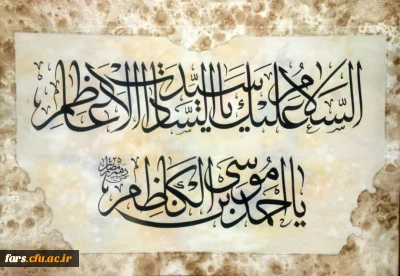 السلام علیک یا سید السادات الاعاظم
یا احمد بن موسی الکاظم
fars.cfu.ac.ir